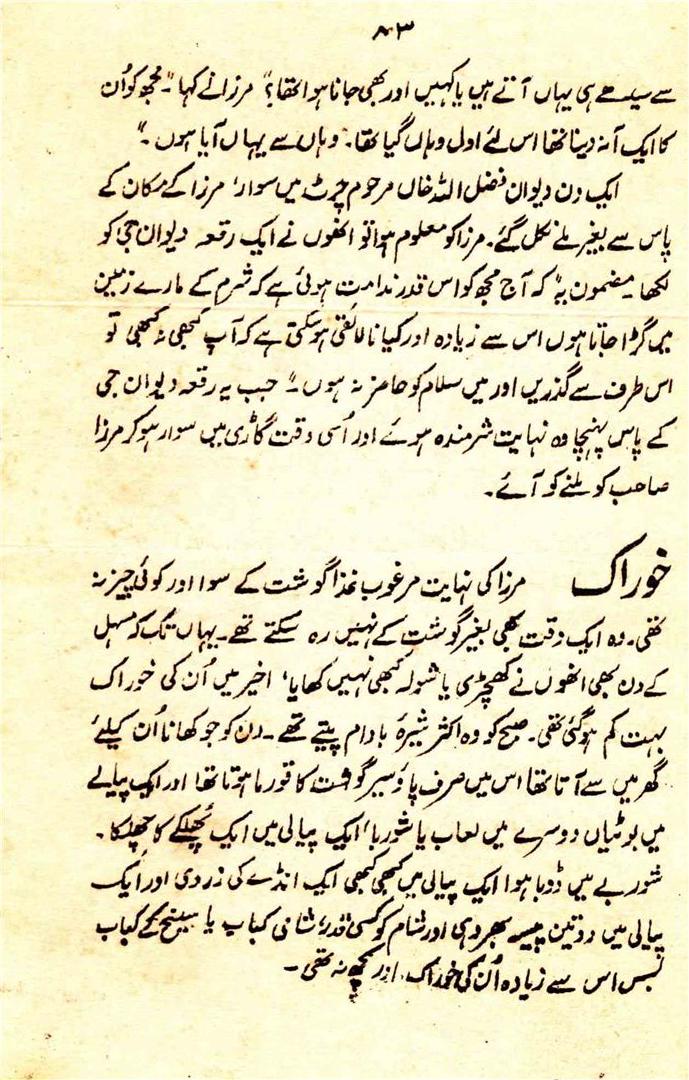 ۸۳
سے سیدھے ہی یہاں آتے ہیں یا کہیں اور بھی جانا ہوا تھا؟" مرزا نے کہا۔ "مجھ کو اُن
کا ایک آنہ دینا تھا اس لئے اول وہاں گیا تھا۔ وہاں سے یہاں آیا ہوں۔"
ایک دن دیوان فضل اللہ خاں مرحوم چرٹ میں سوار، مرزا کے مکان کے
پاس سے بغیر ملے نکل گئے۔ مرزا کو معلوم ہوا تو انھوں نے ایک رقعہ دیوان جی کو
لکھا۔ مضمون یہ کہ آج مجھ کو اس قدر ندامت ہوئی ہے کہ شرم کے مارے زمین
میں گڑا جاتا ہوں اس سے زیادہ اور کیا نالائقی ہو سکتی ہے کہ آپ کبھی نہ کبھی تو
اس طرف سے گذریں اور میں سلام کو حاضر نہ ہوں۔" جب یہ رقعہ دیوان جی
کے پاس پہنچا وہ نہایت شرمندہ ہوئے اور اُسی وقت گاڑی میں سوار ہو کر مرزا
صاحب کو ملنے کو آئے۔
خوراک مرزا کی نہایت مرغوب غذا گوشت کے سوا اور کوئی چیز نہ
تھی۔ وہ ایک وقت بھی بغیر گوشت کے نہیں رہ سکتے تھے۔ یہاں تک کہ مسہل
کے دن بھی انھوں نے کھچڑی یا شولہ کبھی نہیں کھایا، اخیر میں اُن کی خوراک
بہت کم ہو گئی تھی۔ صبح کو وہ اکثر شیرۂ بادام پیتے تھے۔ دن کو جو کھانا اُن کیلئے
گھر میں سے آتا تھا اس میں صرف پاؤ سیر گوشت کا قورما ہوتا تھا اور ایک پیالے
میں بوٹیاں دوسرے میں لعاب یا شوربا، ایک پیالی میں ایک پُھلکے کا چھلکا۔
شوربے میں ڈوبا ہوا ایک پیالی میں کبھی کبھی ایک انڈے کی زردی اور ایک
پیالی میں دو تین پیسہ بھر دہی اور شام کو کسی قدر شامی کباب یا سیخ کے کباب
بس اس سے زیادہ اُن کی خوراک اور کچھ نہ تھی۔